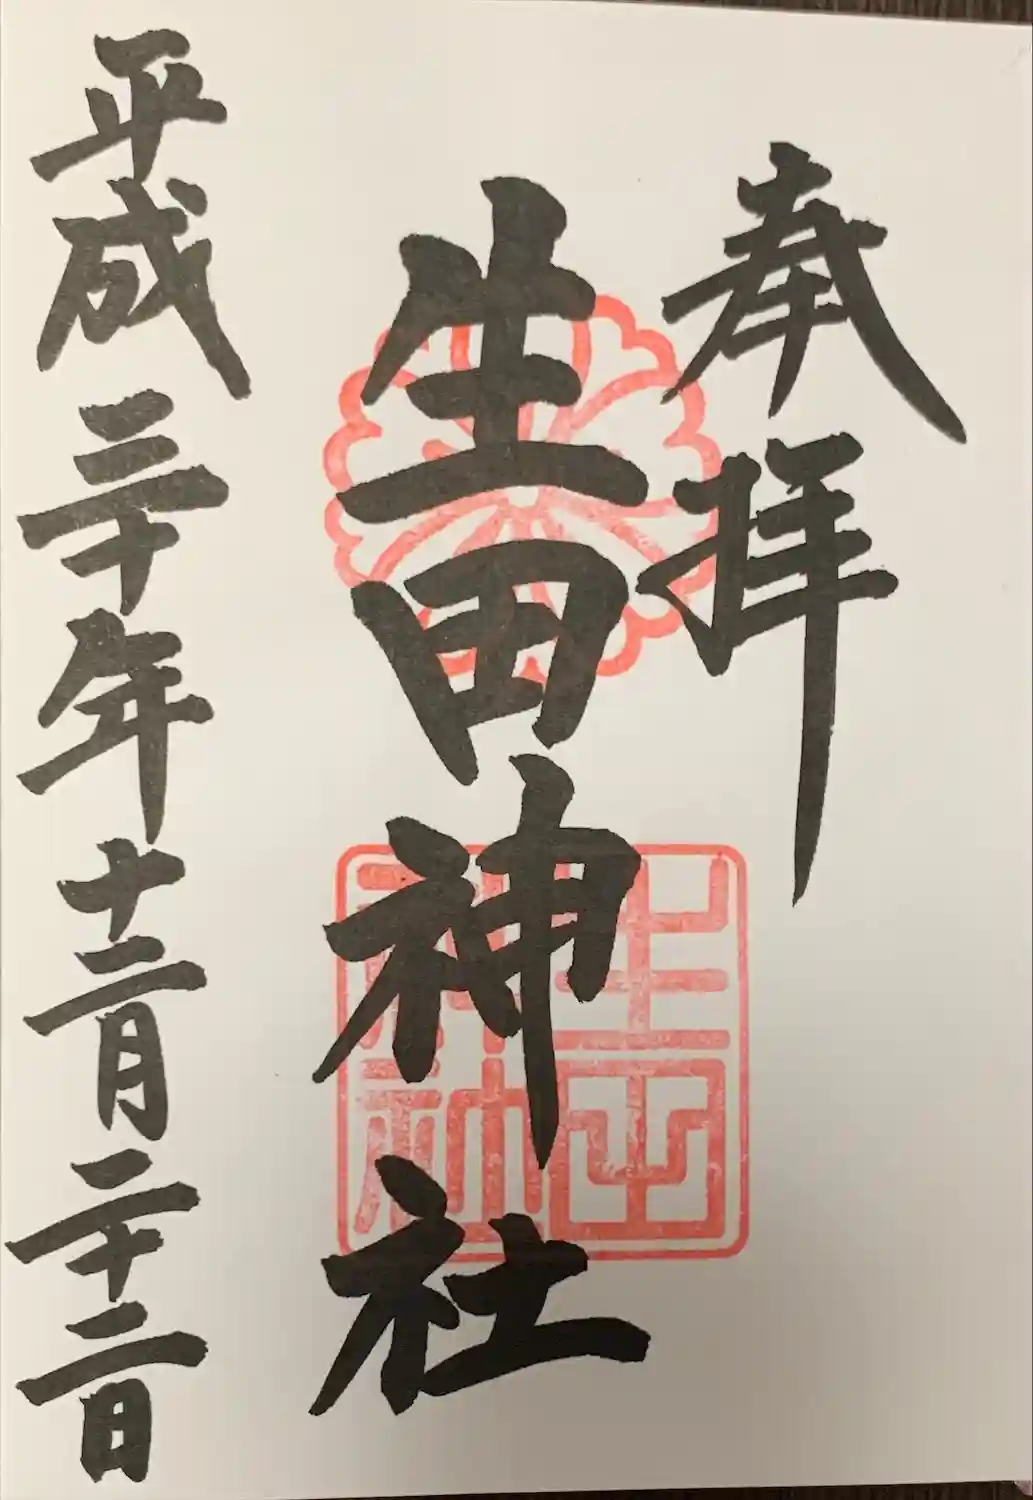 奉拝
生田神社
生田神社
平成三十年十二月二十二日